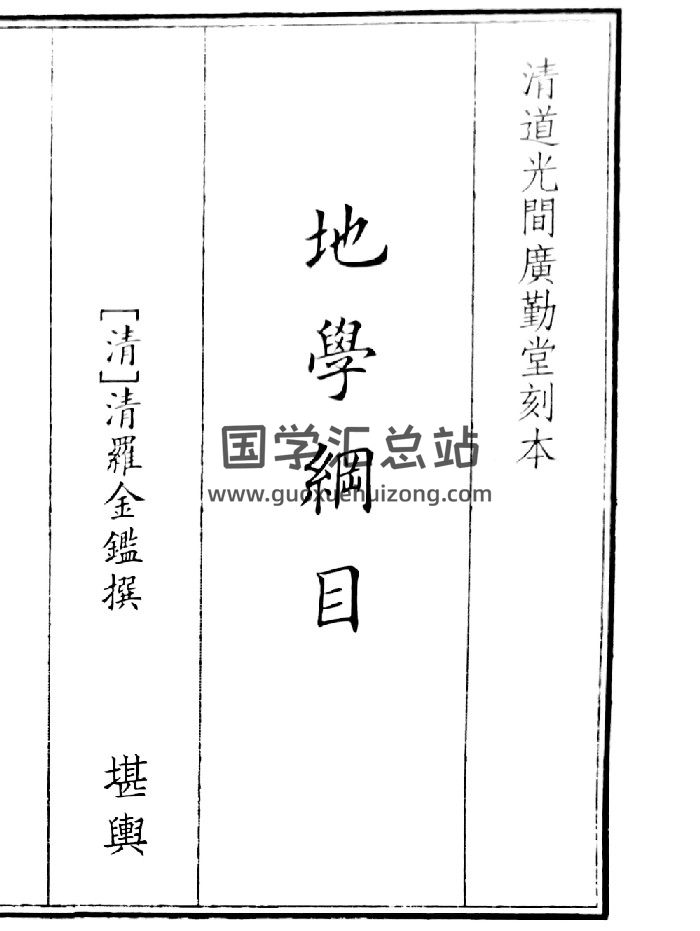 清道光間廣勤堂刻本
地學綱目
[清]清羅金鑑撰
堪輿
国学汇总站
www.guoxuehuizong.com